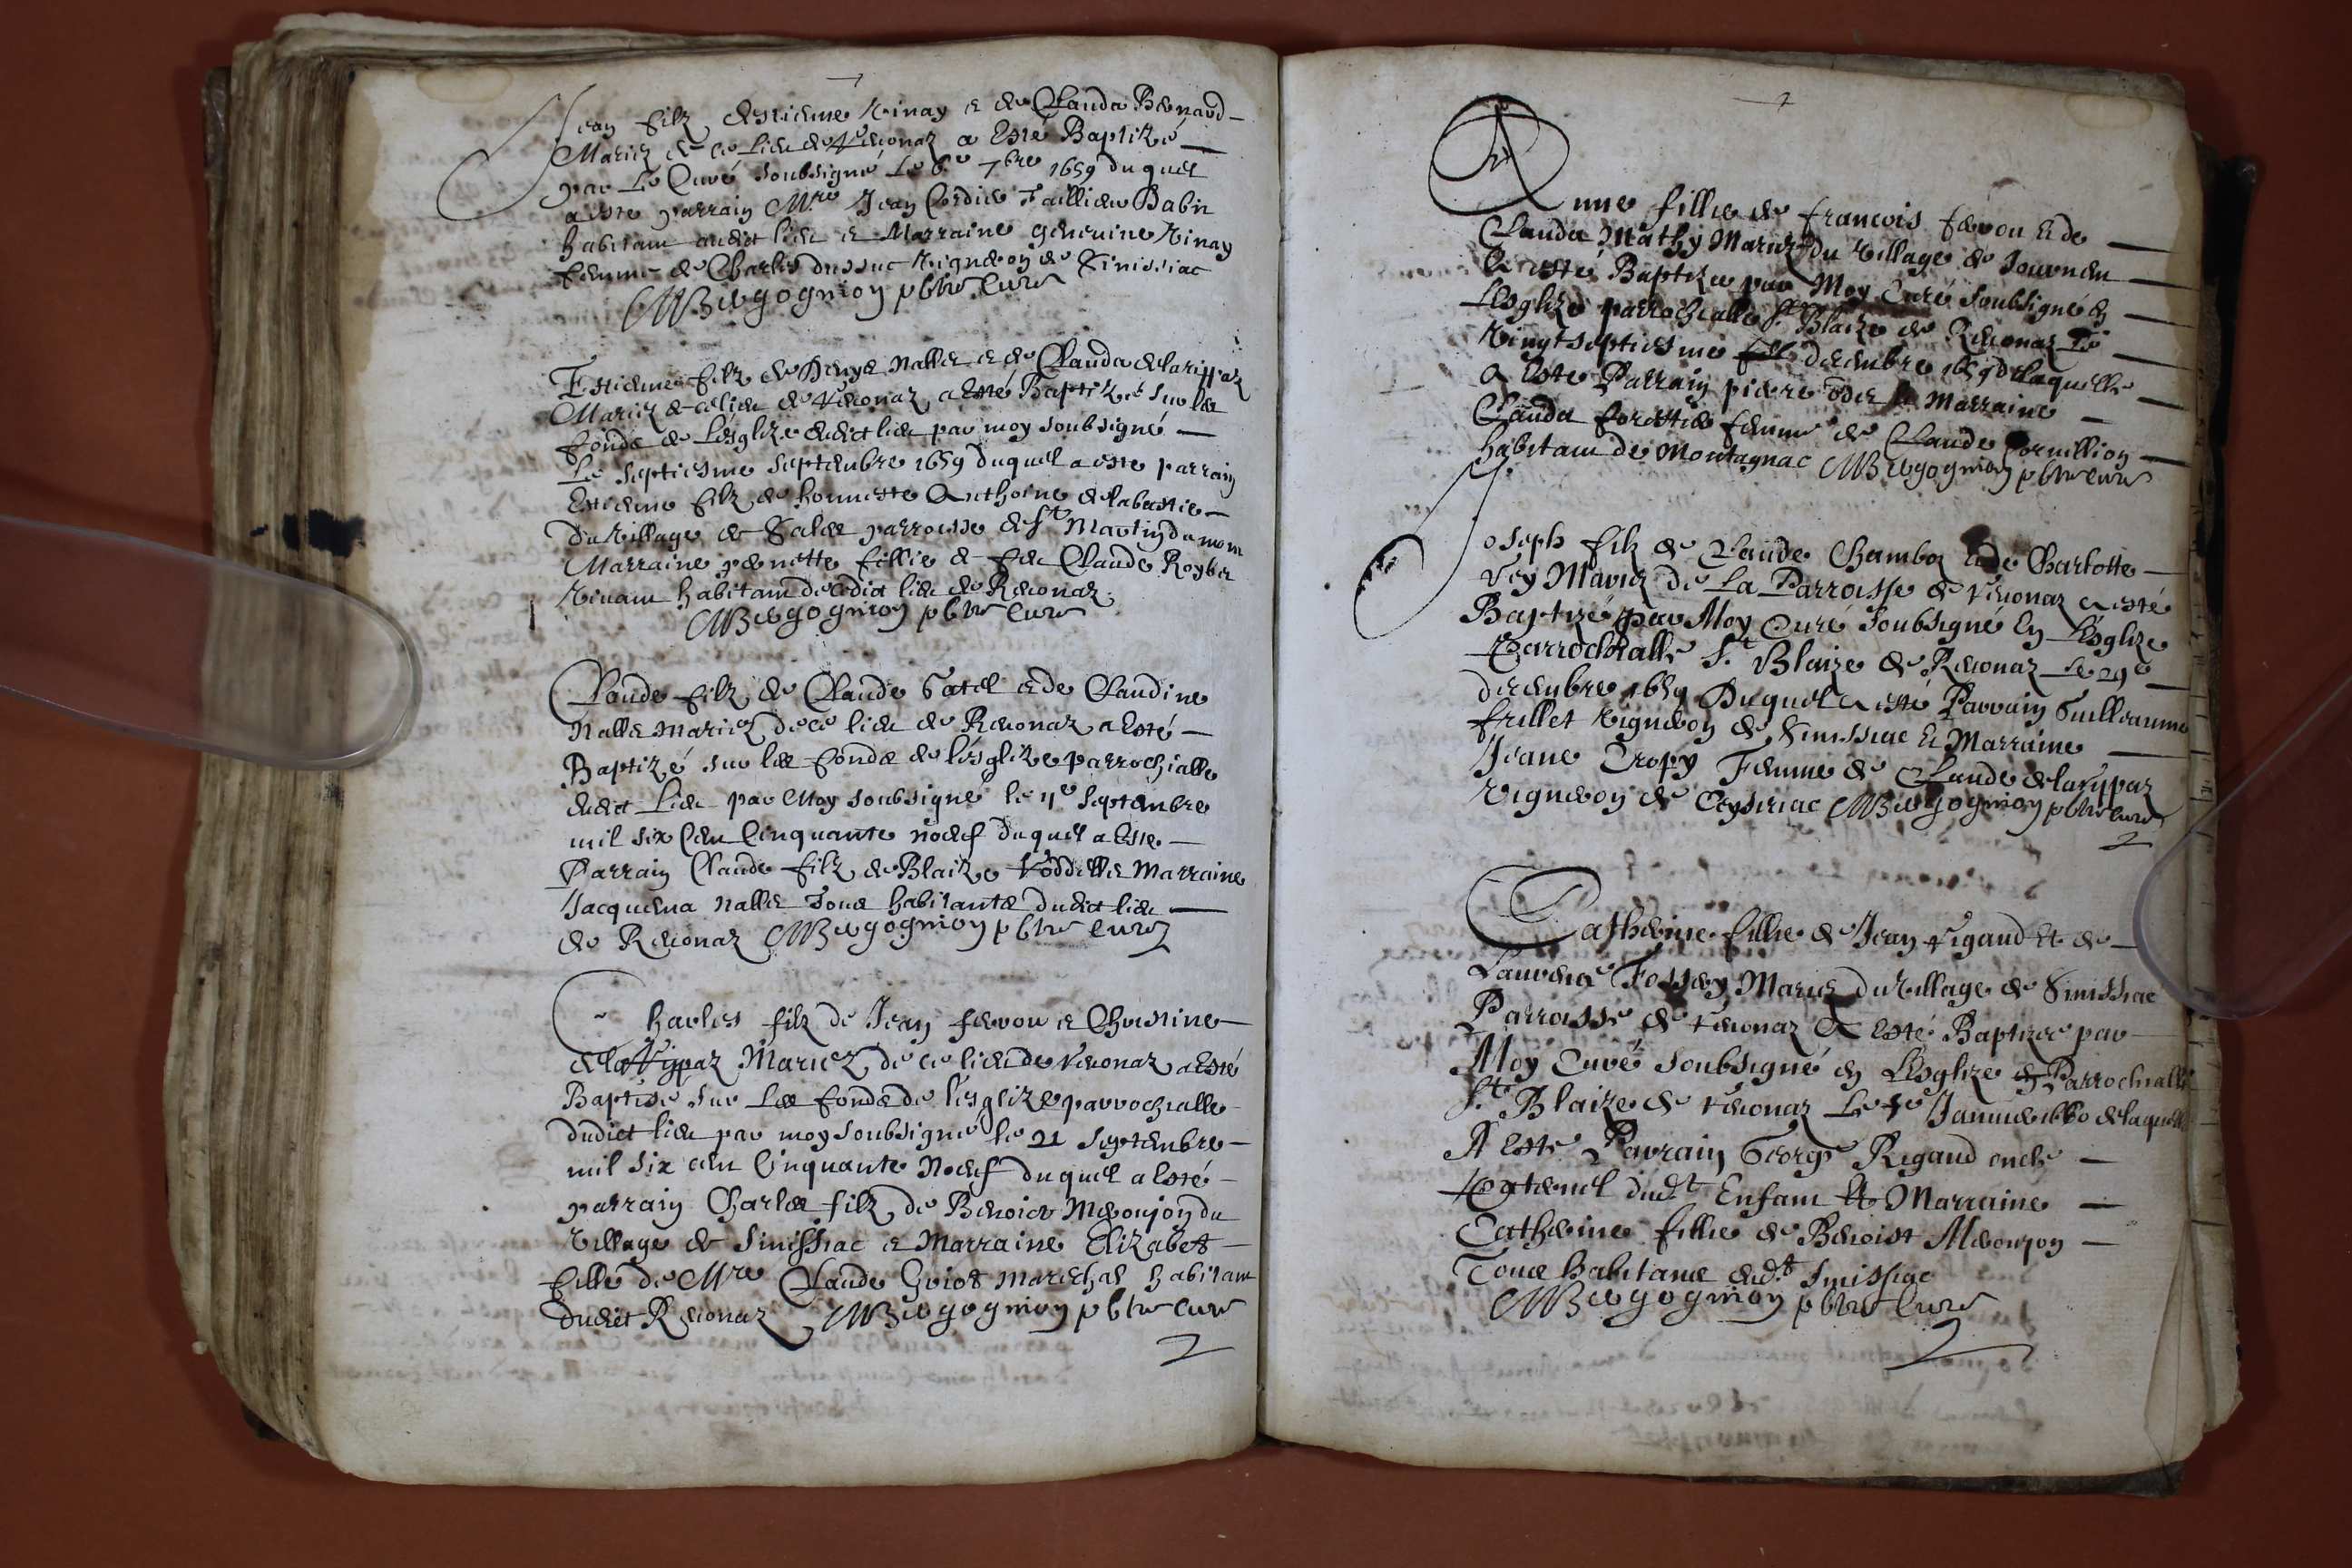 Jean filz destienne Vinay e de Clauda Bernard
Mariez de ce lieu de Revonaz a Esté Baptizé
par Le Curé soubsigné Le 6e 7bre 1659 duquel
a este parrain Mre Jean Cordier
habitant audict lieu e Marraine genevine Vinay
femme de Charles dussuc vigneron de Sinissiac
Bergognion pbre Curé
Estienne filz de Denys Nallet e de Clauda delarippaz
Mariez de ce lieu de Revonaz a Esté Baptizé sur les
fonds de Lesglize dudict lieu par moy soubsigné
Le septiesme septembre 1659 duquel a este parrain
Estienne filz de honneste Anthoine delabastie
du village de parroisse de St Martin du mont
Marraine pernette fillie de feu Claude Royber
vivant habitant dudict lieu de Revonaz
Bergognion pbre Curé
Claude filz de Claude Catel e de Claudine
Nallet Mariez de ce lieu de Revonaz a Esté
Baptizé sur les fonds de lésglize parrochialle
dudict Lieu par Moy soubsigné le 11e Septembre
mil six Cent Cinquante noeuf duquel a Este
Parrain Claude filz de Blaize e Marraine
Jacquema Nallet Tous habitants dudict lieu
de Revonaz Bergognion pbre Curé
Charles filz de Jean fevou e Christine
delarippaz Mariez de ce lieu de Revonaz a Esté
Baptisé sur Les fonds de lésglize parrochialle
dudict lieu par moy soubsigné le 21 Septembre
mil six cent Cinquante Noeuf duquel a Esté
parrain Charles filz de Benoict Mermonjon du
village de Sinissiac e Marraine Elizabet
fille de Mre Claude Guiot Mareschal habitant
dudict Revonaz Bergognion pbre Curé
Anne fillie de francois fevou E de
Clauda Mathy Mariez du village de Journan
A esté Baptizee par Moy Curé soubsigné En
Lesglize parrochialle St Blaize de Revonaz Le
vingt septiesme decembre 1659 de laquelle
A Este Parrain pierre oder e Marraine
Clauda forestie femme de Claude Cornillion
habitant de Montagnac Bergognion pbre Curé
Joseph filz de Claude Chamboz E de Charlotte
Vey Mariez de La Parroisse de Revonaz a esté
Baptizé par Moy Curé soubsigné En Lésglize
Parrochialle St Blaize de Revonaz Le 29e
decembre 1659 Duquel a esté Parrain Guilleaume
frillet vigneron de Sinissiac E Marraine
Jeane Tropy Femme de Claude delarypaz
vigneron de Ceyseriac Bergognion pbre Curé
Catherine fillie de Jean Rigaud Et de
Laurence Fossey Mariez du village de Sinissiac
Parroisse de Revonaz A Esté Baptizee par
Moy Curé soubsigné en Lésglize Parrochialle
St Blaize de Revonaz Le Janvier 1660 de laquelle
A Este Parrain George Rigaud oncle
Paternel dudt Enfant Et Marraine
Catherine fillie de Benoist Mermonjon
Tous habitans dudt Sinissiac
Bergognion pbre Curé